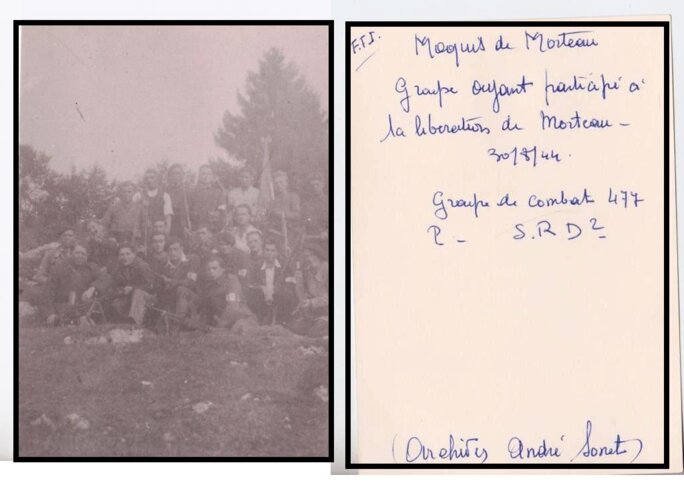 F.F.I.
Maquis de Morteau
Groupe ayant participé à
la libération de Morteau -
30/8/44.
Groupe de combat 477
P - S.R D2
(Archives André Sonet)